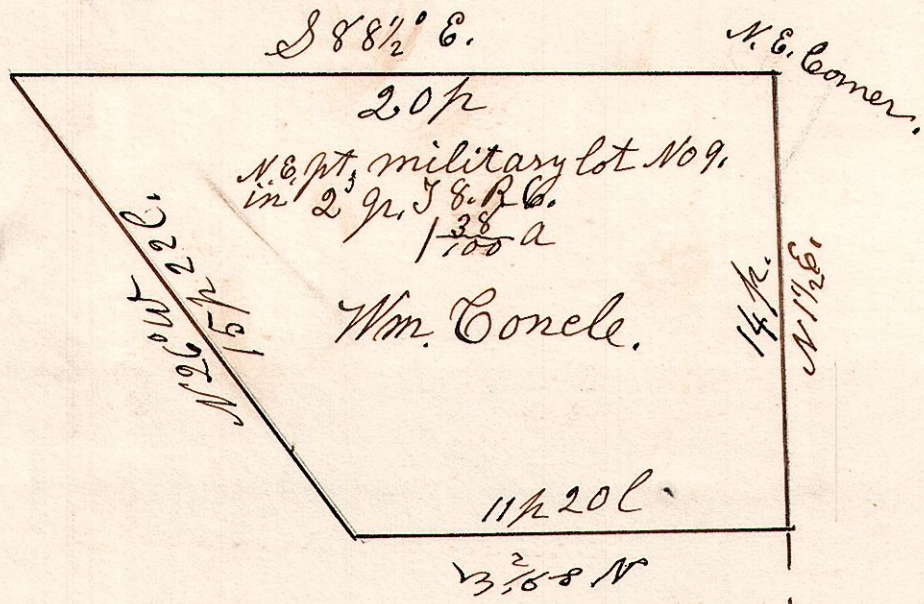 S 88½° E.
N.E. Corner.
20p
N.E. pt. military lot No 9.
in 2d qr. T 8. R 6.
1 38/100 a
Wm. Concle.
N26°W
15p 22l.
14p.
N 1½E.
11p 20l.